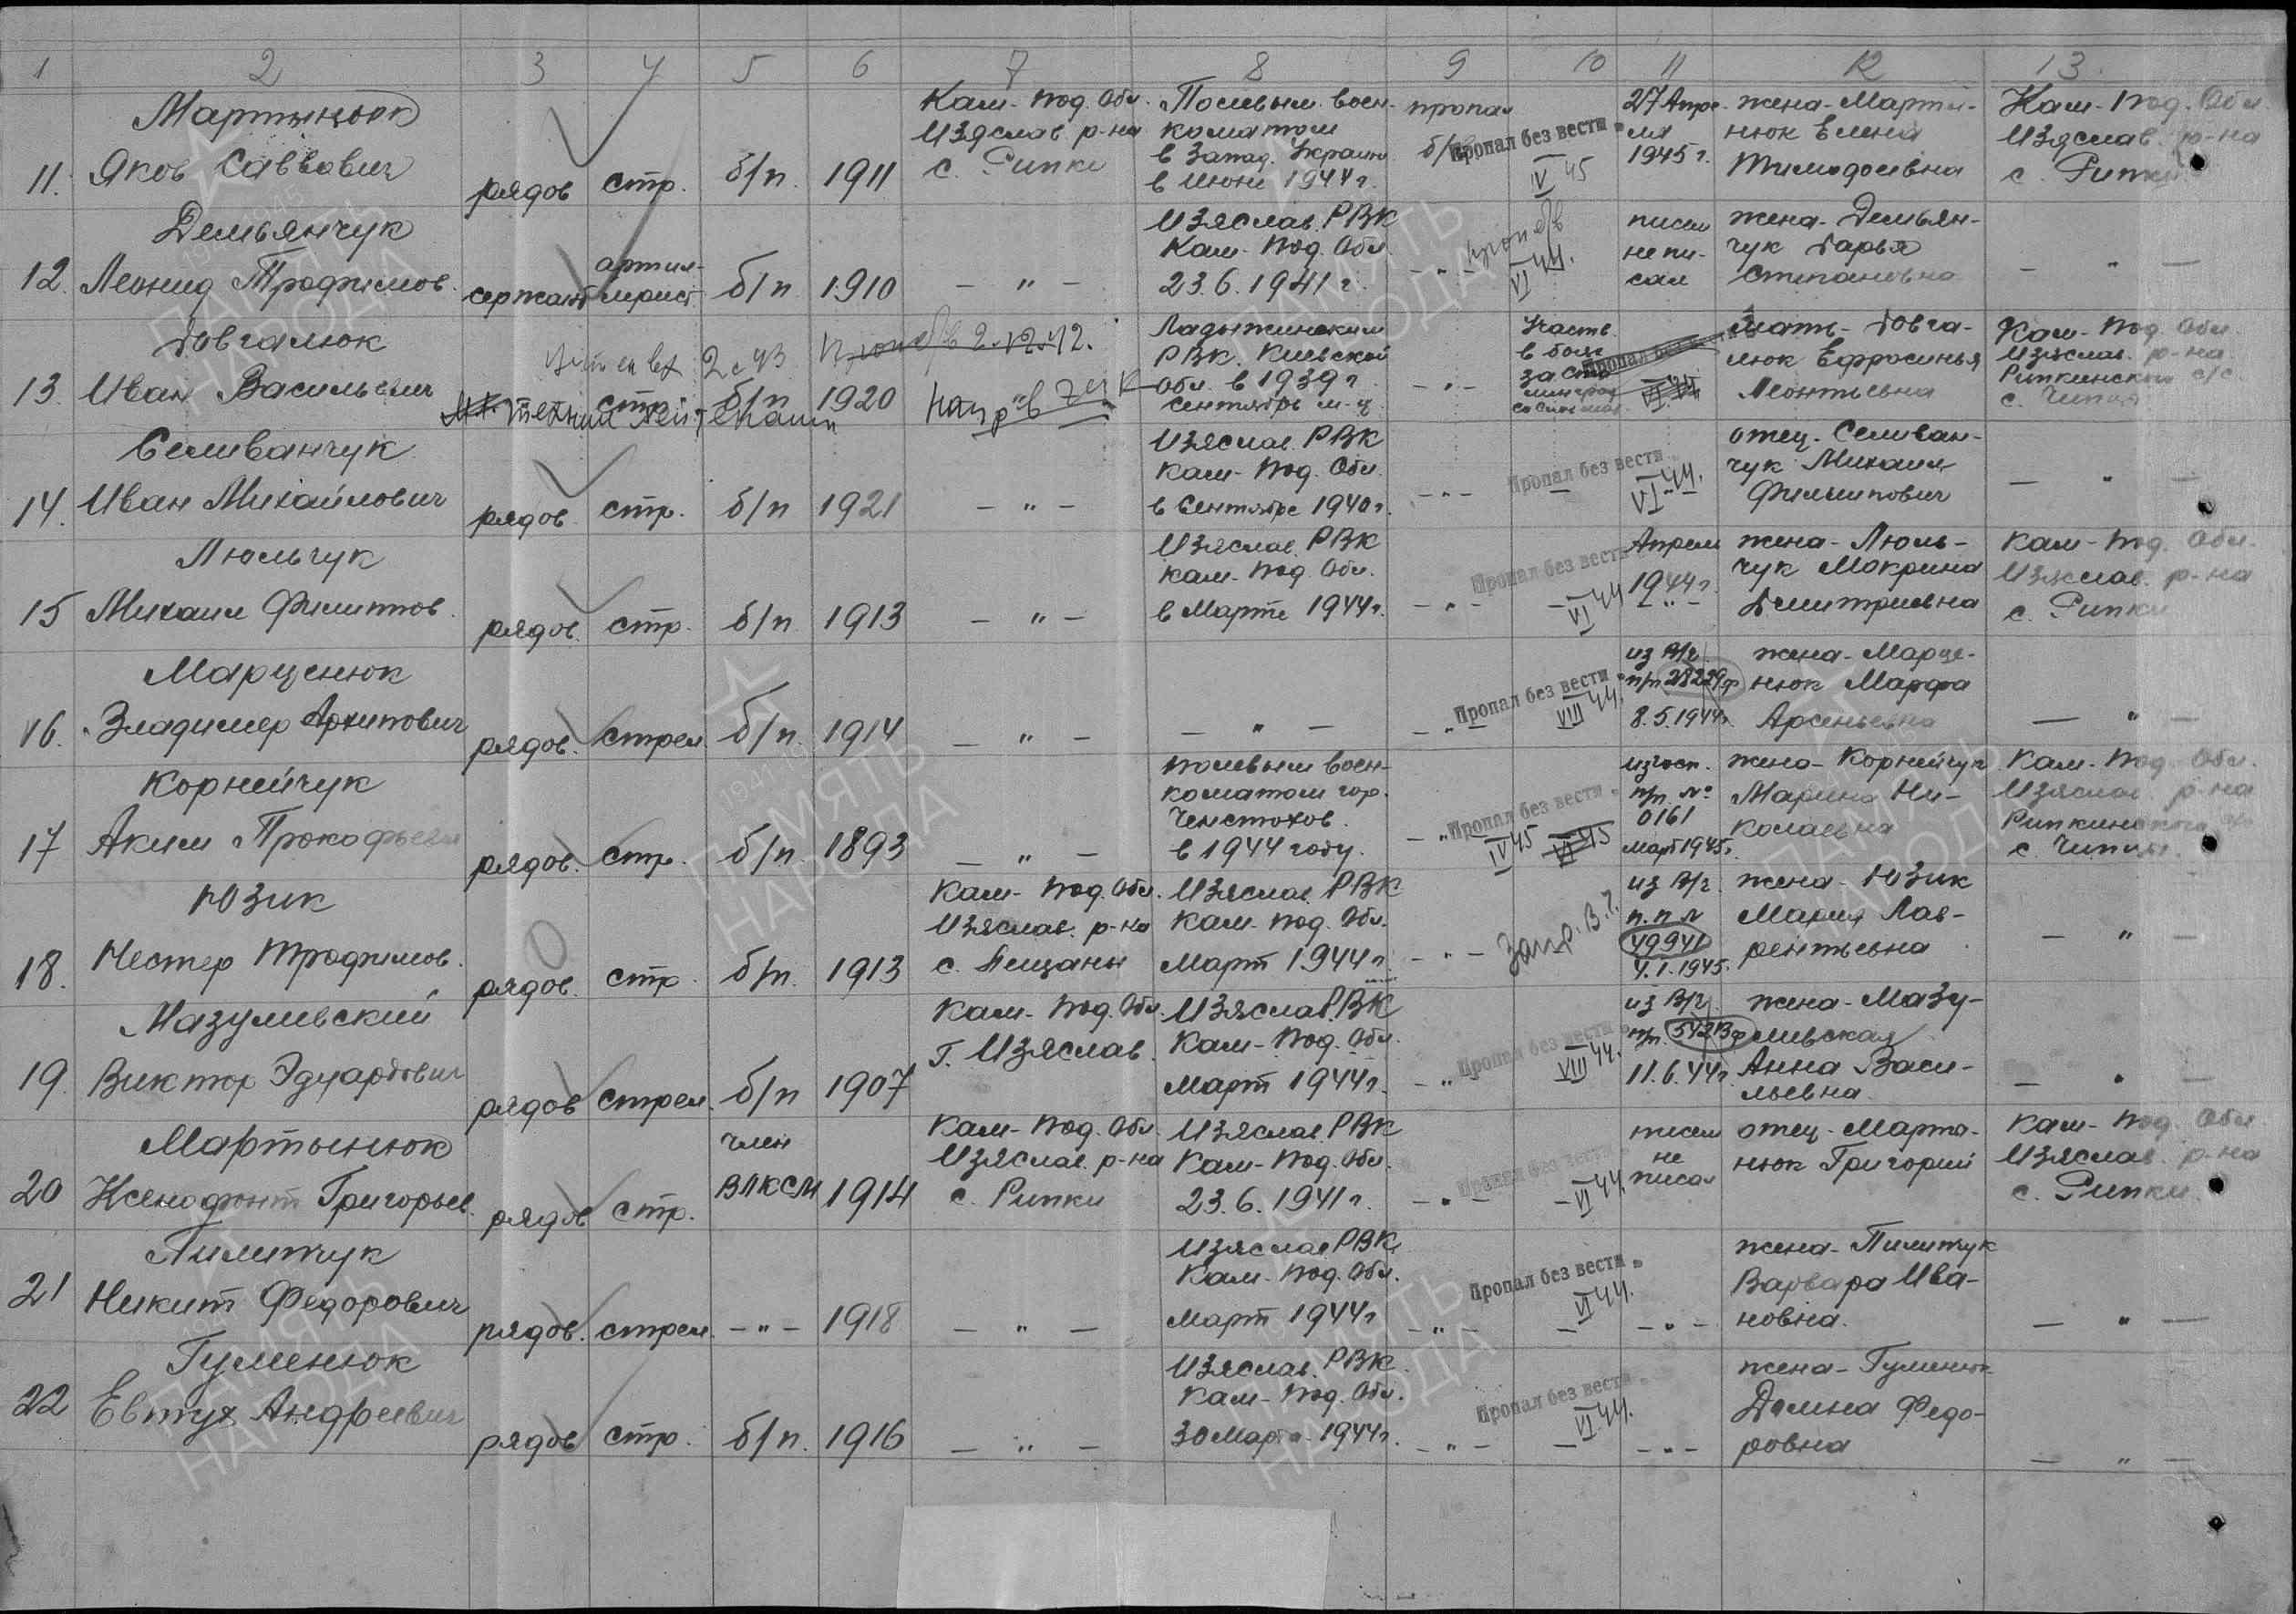 1 2 3 4 5 6 7 8 9 10 11 12 13
11. Мартынюк
Яков Саввович
рядов стр. б/п. 1911
Кам-под. Обл.
Изяслав. р-на
с. Рипки
Полевым воен-
коматом
в Запад. Украине
в июне 1944 г.
пропал
б/в
Пропал без вести
IV 45
27 Апре-
ля
1945 г.
жена-Марты-
нюк Елена
Тимофеевна
Кам-под. Обл.
Изяслав. р-на
с. Рипки
12. Демьянчук
Леонид Трофимов.
сержант артил-
лерист б/п 1910 - " -
Изяслав. РВК
Кам-под. Обл.
23.6.1941 г.
- " -
проп б/в
VI 44.
писем
не пи-
сал
жена-Демьян-
чук Дарья
Степановна
- " -
13. Довгалюк
Иван Васильевич
стр. б/п 1920
техник лейтенант
Проп б/в 2.12.42.
Ладыжинским
РВК. Киевской
обл. в 1939 г
сентябрь м-ц
- " -
Участв.
в боях
за Ста-
Пропал без вести
VI 44
мать-Довга-
люк Ефросинья
Леонтьевна
Кам-под. Обл.
Изяслав. р-на
Рипкинский с/с.
14. Селиванчук
Иван Михайлович
рядов. стр. б/п 1921 - " -
Изяслав. РВК
Кам-под. Обл.
в Сентябре 1940 г.
- " -
Пропал без вести
VI 44.
отец-Селиван-
чук Михаил
Филиппович
- " -
15 Люльчук
Михаил Филиппов.
рядов. стр. б/п 1913 - " -
Изяслав. РВК
Кам-под. Обл.
в Марте 1944 г.
- " -
Пропал без вести
VI 44
Апрель
1944 г.
- " -
жена-Люль-
чук Макрина
Дмитриевна
Кам-под. Обл.
Изяслав. р-на
с. Рипки
16. Марценюк
Владимер Архипович
рядов. стрел. б/п. 1914 - " - - " - - " -
Пропал без вести
VIII 44.
из В/ч
п/п 28229ф
8.5.1944г.
жена-Марце-
нюк Марфа
Арсеньевна
- " -
17 Корнейчук
Аким Прокофьевич
рядов. стр. б/п. 1893 - " -
полевым воен-
коматом гор.
Ченстохов.
в 1944 году.
- " -
Пропал без вести
IV 45 VI 45
из госп.
п/п №
0161
март 1945г.
жена-Корнейчук
Марина Ни-
колаевна
Кам-под. Обл.
Изяслав. р-на
Рипкинского с/с
18. Юзик
Нестер Трофимов.
рядов. стр. б/п. 1913
Кам-под. Обл.
Изяслав. р-на
с. Пещаны
Изяслав. РВК
Кам-под. Обл.
Март 1944 г.
- " -
Запр. В.Ч.
из В/ч
п.п №
49941
4.1.1945.
жена-Юзик
Мария Лав-
рентьевна
- " -
19. Мазулевский
Виктор Эдуардович
рядов стрел. б/п 1907
Кам-под. Обл.
г. Изяслав.
Изяслав. РВК
Кам-под. Обл.
Март 1944г.
- " -
Пропал без вести
VIII 44.
из В/ч
п/п. 5423ф
11.6.44г.
жена-Мазу-
левская
Анна Васи-
льевна.
- " -
20 Мартынюк
Ксенофонт Григорьев.
рядов стр.
член
ВЛКСМ 1914
Кам-под. Обл.
Изяслав. р-на
с. Рипки
Изяслав. РВК
Кам-под. Обл.
23.6.1941 г.
- " -
Пропал без вести
VI 44.
писем
не
писал
отец-Марты-
нюк Григорий
Кам-под. Обл
Изяслав. р-на
с. Рипки.
21 Пилипчук
Никит Федорович
рядов. стрел. - " - 1918 - " -
Изяслав. РВК
Кам-под. Обл.
Март 1944г
- " -
Пропал без вести
VI 44.
- " -
жена-Пилипчук
Варвара Ива-
новна.
- " -
22 Гуменюк
Евтух Андреевич
рядов стр. б/п. 1916 - " -
Изяслав. РВК
Кам-под. Обл.
30 Марта 1944г.
- " -
Пропал без вести
VI 44.
- " -
жена-Гуменюк
Домна Федо-
ровна
- " -
ПАМЯТЬ
НАРОДА